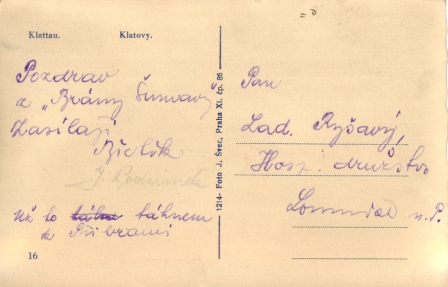 Klattau. Klatovy.
Pozdrav
z „Brány Šumavy"
Zasílají
Bidlík
Už to táhnem
k Příbrami
16
1214 - Foto J. Švec, Praha XI. čp. 86
Pan
Lad. Ryšavý,
Hosp. družstvo
Lomnice n. P.